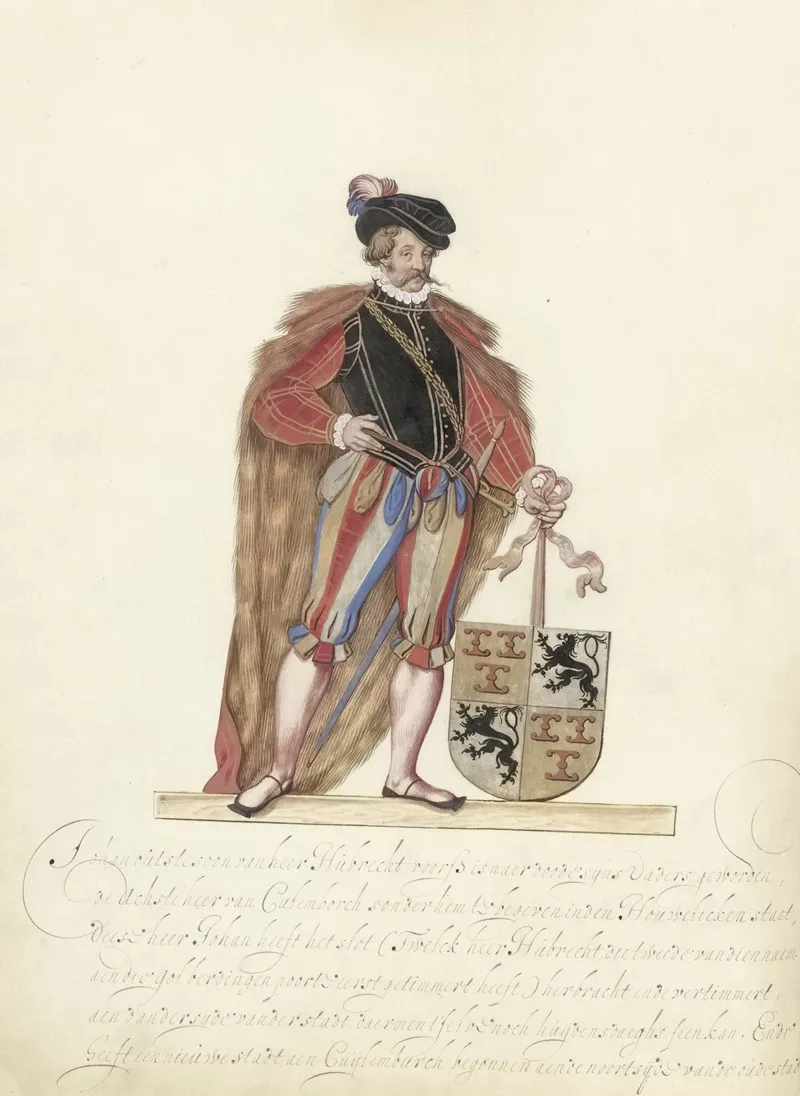 Johan outste soon van heer Hubrecht voorss is naer doode syns Vaders geworden,
de Achste heer van Culemborch sonder hem te begeven in den Houwelicken staet,
Dese heer Johan heeft het slot (Twelck heer Hubrecht die tweede van dien naem
aen die Golberdingen poort eerst getimmert heeft) herbracht ende vertimmert,
aen dandersyde vander stadt daermen tselve noch huydensdaeghs sien kan. Ende
heeft een nieuwe stadt aen Cuylemburch begonnen aende noortsyde vande oude stad